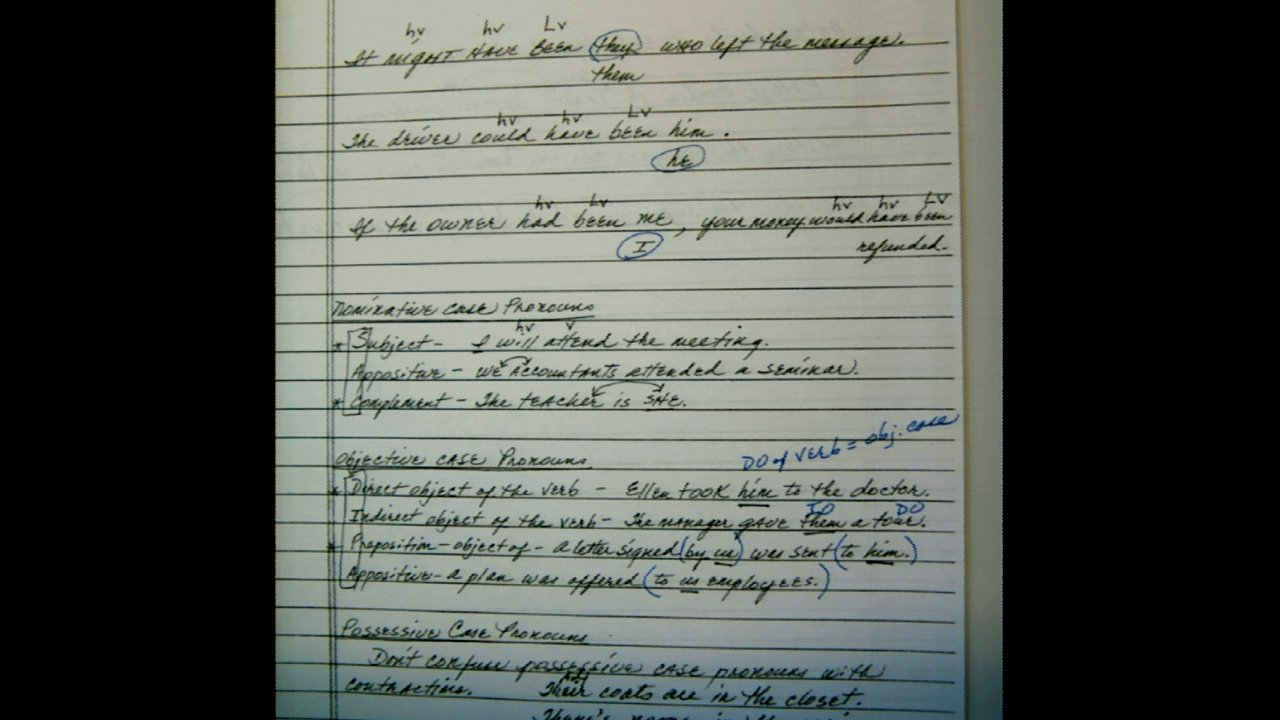 hv hv Lv
It might have been they who left the message.
them
hv hv Lv
The driver could have been him.
he
hv Lv hv hv Lv
If the owner had been me, your money would have been
I refunded.
Nominative case Pronouns
hv v
* Subject - I will attend the meeting.
Appositive - we accountants attended a seminar.
* Complement - The teacher is she.
DO of verb = obj. case
Objective case Pronouns
* Direct object of the verb - Ellen took him to the doctor.
IO DO
Indirect object of the verb - The manager gave them a tour.
* Preposition - object of - a letter signed (by us) was sent (to him.)
Appositive - a plan was offered (to us employees.)
Possessive Case Pronouns
Don't confuse possessive case pronouns with
contractions. Their coats are in the closet.